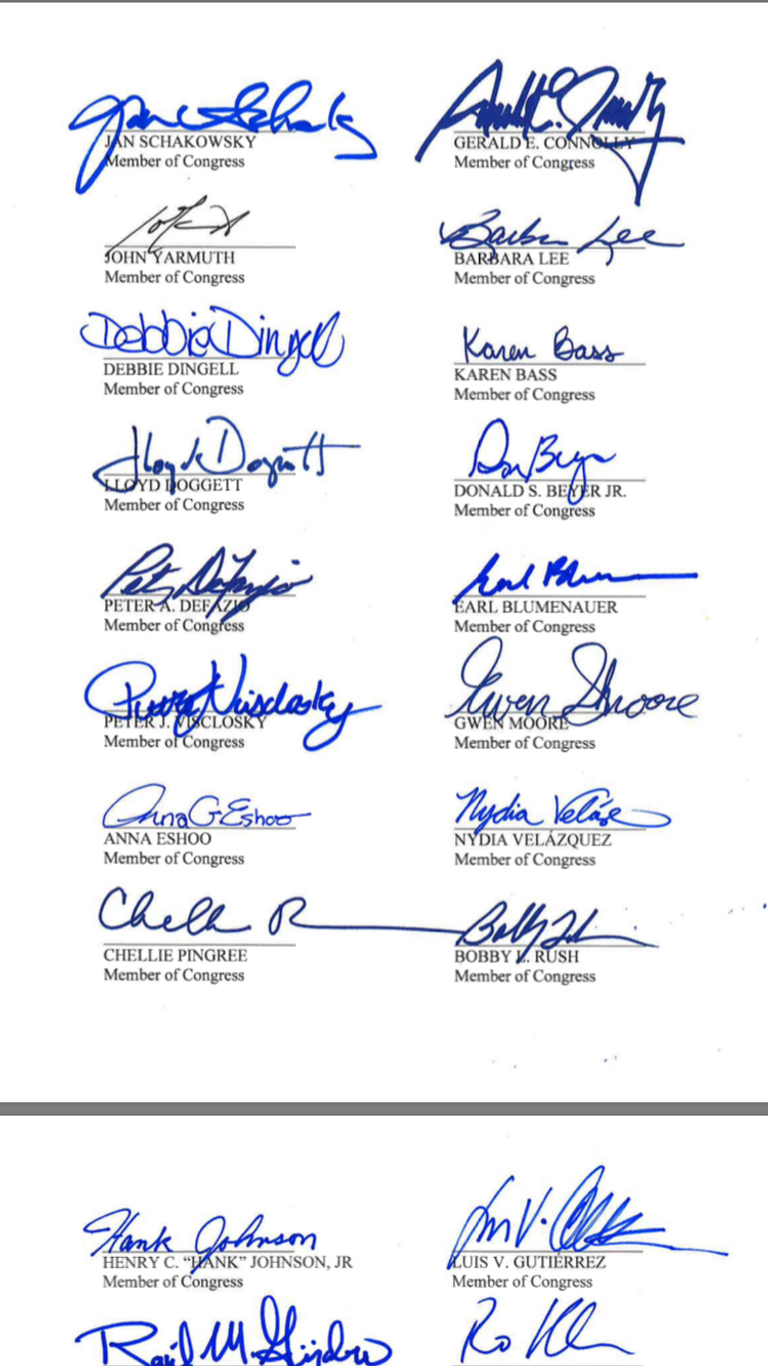 Jan Schakowsky
JAN SCHAKOWSKY
Member of Congress
GERALD E. CONNOLLY
Member of Congress
JOHN YARMUTH
Member of Congress
Barbara Lee
BARBARA LEE
Member of Congress
Debbie Dingell
DEBBIE DINGELL
Member of Congress
Karen Bass
KAREN BASS
Member of Congress
Lloyd Doggett
LLOYD DOGGETT
Member of Congress
Don Beyer
DONALD S. BEYER JR.
Member of Congress
Peter DeFazio
PETER A. DEFAZIO
Member of Congress
Earl Blumenauer
EARL BLUMENAUER
Member of Congress
Visclosky
PETER J. VISCLOSKY
Member of Congress
Gwen S Moore
GWEN MOORE
Member of Congress
Anna G Eshoo
ANNA ESHOO
Member of Congress
Nydia Veláz
NYDIA VELÁZQUEZ
Member of Congress
CHELLIE PINGREE
Member of Congress
BOBBY L. RUSH
Member of Congress
Hank Johnson
HENRY C. “HANK” JOHNSON, JR
Member of Congress
LUIS V. GUTIÉRREZ
Member of Congress
Raúl M. Grijalva